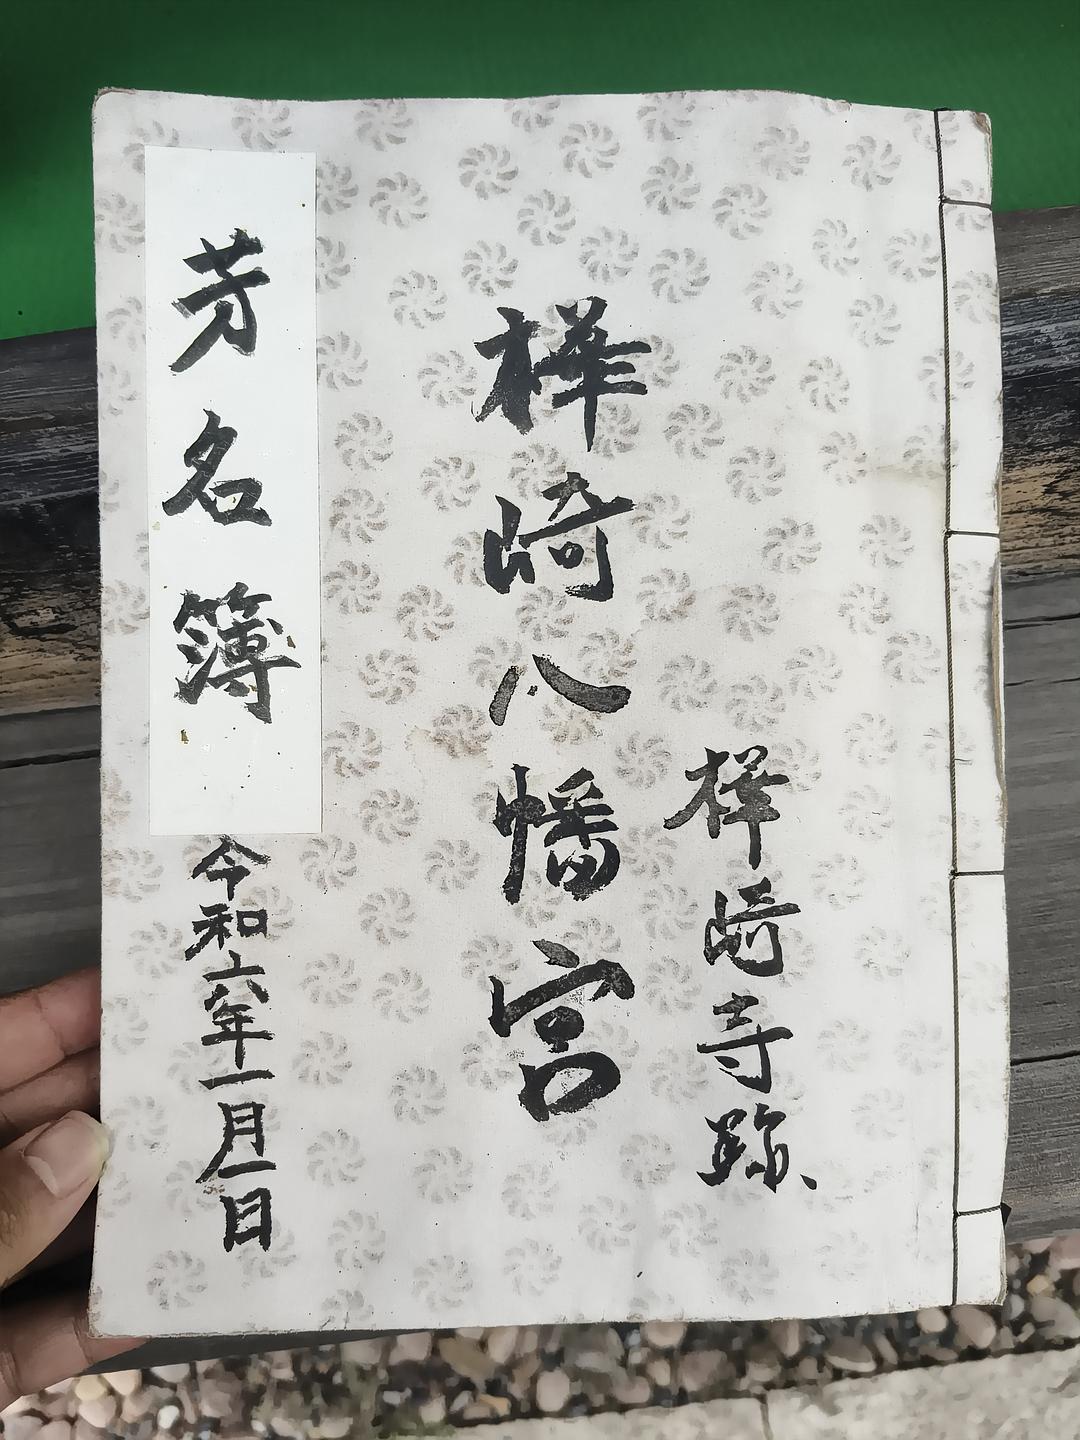 樺崎寺跡
樺崎八幡宮
芳名簿
令和六年一月一日